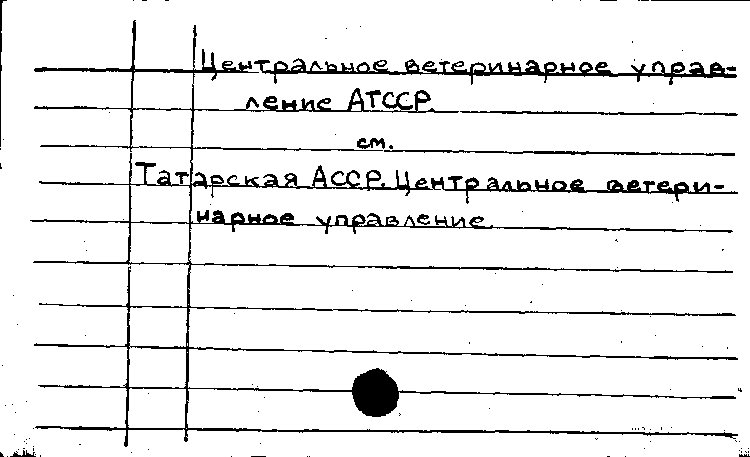 Центральное ветеринарное управ-
ление АТССР.
см.
Татарская АССР. Центральное ветери-
нарное управление